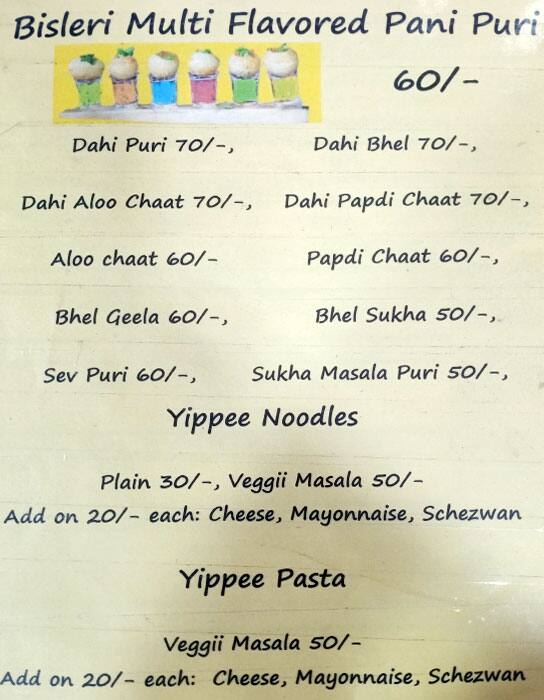 Bisleri Multi Flavored Pani Puri
60/-
Dahi Puri 70/-, Dahi Bhel 70/-,
Dahi Aloo Chaat 70/-, Dahi Papdi Chaat 70/-,
Aloo chaat 60/- Papdi Chaat 60/-,
Bhel Geela 60/-, Bhel Sukha 50/-,
Sev Puri 60/-, Sukha Masala Puri 50/-,
Yippee Noodles
Plain 30/-, Veggii Masala 50/-
Add on 20/- each: Cheese, Mayonnaise, Schezwan
Yippee Pasta
Veggii Masala 50/-
Add on 20/- each: Cheese, Mayonnaise, Schezwan